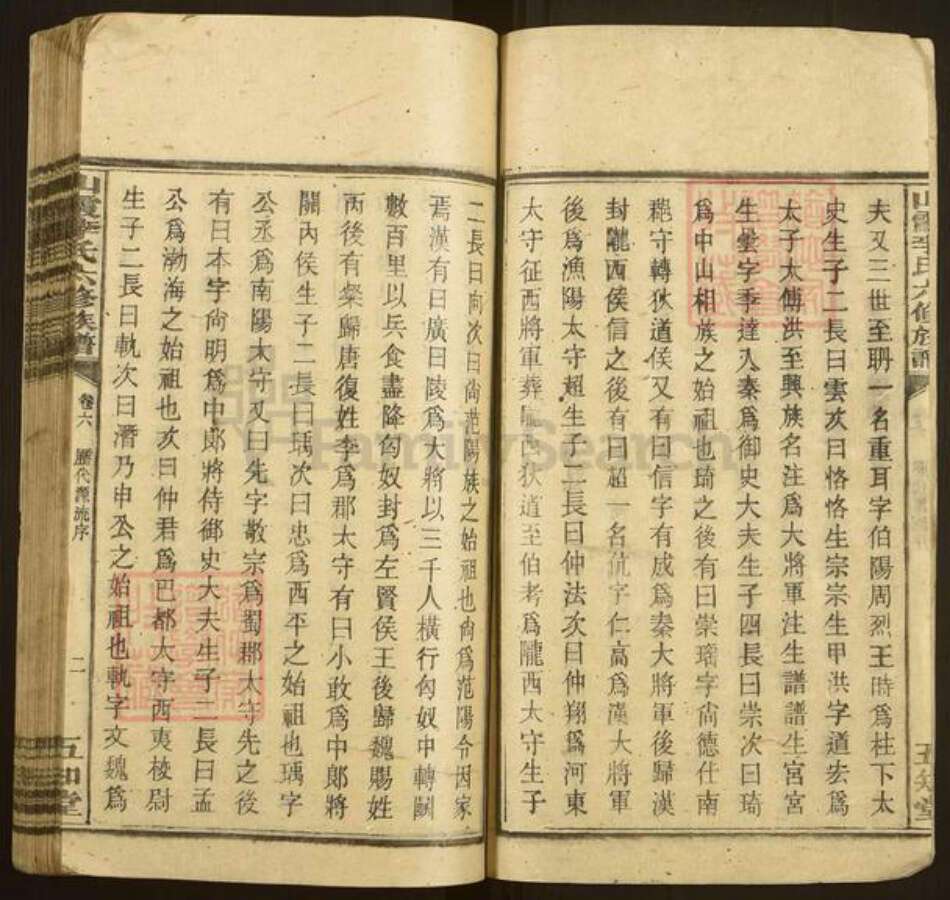 夫又三世至聃一名重耳字伯陽周烈王時爲柱下太
史生子二長曰雲次曰恪恪生宗宗生甲洪字道宏爲
太子太傅洪至興族名注爲大將軍注生譜譜生宮宮
生曇字季達入秦爲御史大夫生子四長曰崇次曰琦
爲中山相族之始祖也琦之後有曰崇瑤字尙德仕南
守轉狄道侯又有曰信字有成爲秦大將軍後歸漢
封隴西侯信之後有曰超一名伉字仁高爲漢大將軍
後爲漁陽太守超生子二長曰仲法次曰仲翔爲河東
太守征西將軍葬隴西狄道至伯考爲隴西太守生子
二長曰向次曰尙范陽族之始祖也尙爲范陽令因家
焉漢有曰廣曰陵爲大將以三千人橫行匈奴中轉鬭
數百里以兵食盡降匈奴封爲左賢侯王後歸魏賜姓
丙後有粲歸唐復姓李爲郡太守有曰小敢爲中郞將
關內侯生子二長曰瑀次曰忠爲西平之始祖也瑀字
公丞爲南陽太守又曰先字敬宗爲蜀郡太守先之後
有曰本字尙明爲中郞將侍御史大夫生子二長曰孟
公爲渤海之始祖也次曰仲君爲巴郡太守西夷棱尉
生子二長曰軌次曰潛乃申公之始祖也軌字文魏爲
山霞李氏六修族譜
卷六
歷代源流序
二
五知堂
山霞李氏六修族譜
五知堂
FamilySearch